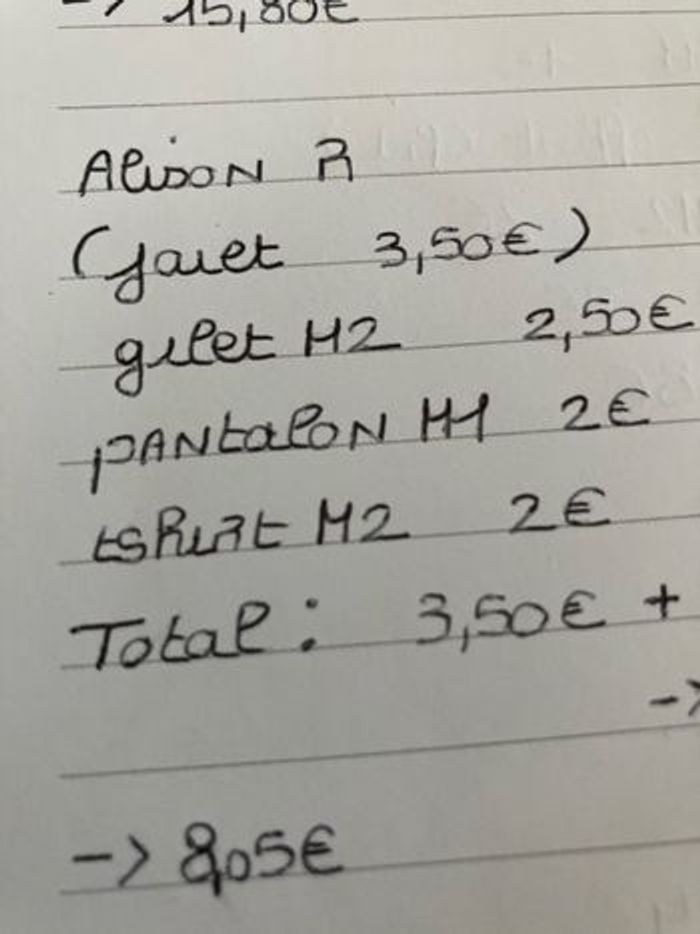 -> 15,80€
Alison R
(jouet 3,50€)
gilet H2 2,50€
pantalon H1 2€
tshirt H2 2€
Total: 3,50€ +
->
-> 8,05€